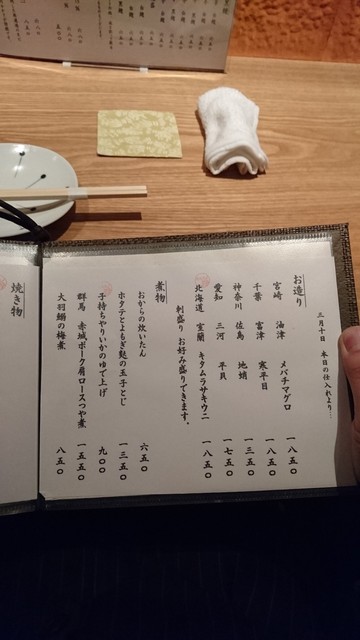 三月十日 本日の仕入れより…
お造り
宮崎 油津 メバチマグロ 一八五〇
千葉 富津 寒平目 一八五〇
神奈川 佐島 地蛸 一三五〇
愛知 三河 平貝 一七五〇
北海道 室蘭 キタムラサキウニ 一八五〇
刺盛り お好み盛りできます。
煮物
おからの炊いたん 六五〇
ホタテとよもぎ麩の玉子とじ 一三五〇
子持ちやりいかのゆで上げ 九〇〇
群馬 赤城ポーク肩ロースつや煮 一五五〇
大羽鰯の梅煮 八五〇
焼き物